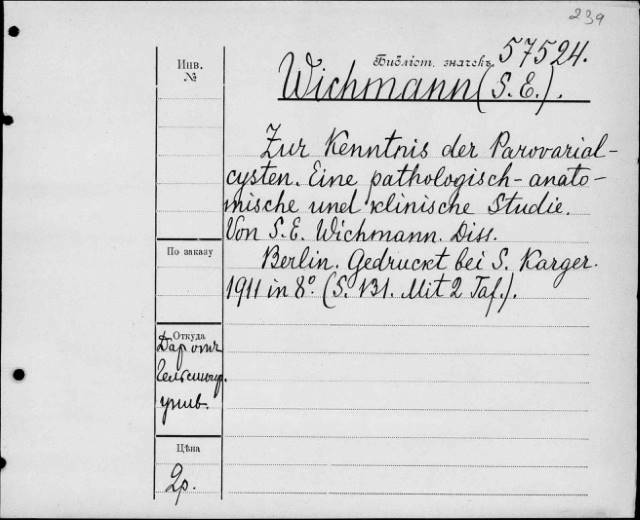 239
Инв.
№
Библіот. значекъ 57524.
Wichmann (S. E.).
Zur Kenntnis der Parovarial-
cysten. Eine pathologisch-anato-
mische und klinische Studie.
Von S. E. Wichmann. Diss.
Berlin. Gedruckt bei S. Karger.
1911 in 8° (S. 131. Mit 2 Taf.).
По заказу
Откуда
Дар отъ
Гельсингф.
унив.
Цѣна
2р.